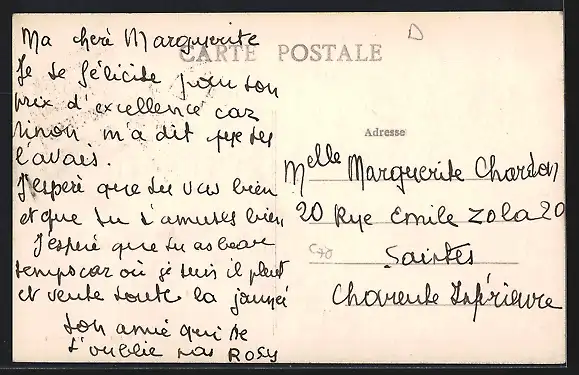 CARTE POSTALE
D
Ma cherè Marguerite
Je te félicite pour ton
prix d'excellence car
Ninon m'a dit que tu
l'avais.
J'esperè que tu vas bien
et que tu t'amuses bien
J'esperè que tu as beau
temps car où je suis il pleut
et vente toute la journeé
ton amie qui ne
t'oublie pas Rosy
Adresse
Melle Marguerite Chardon
20 Rue Emile Zola 20
Saintes
Charente Inférieure